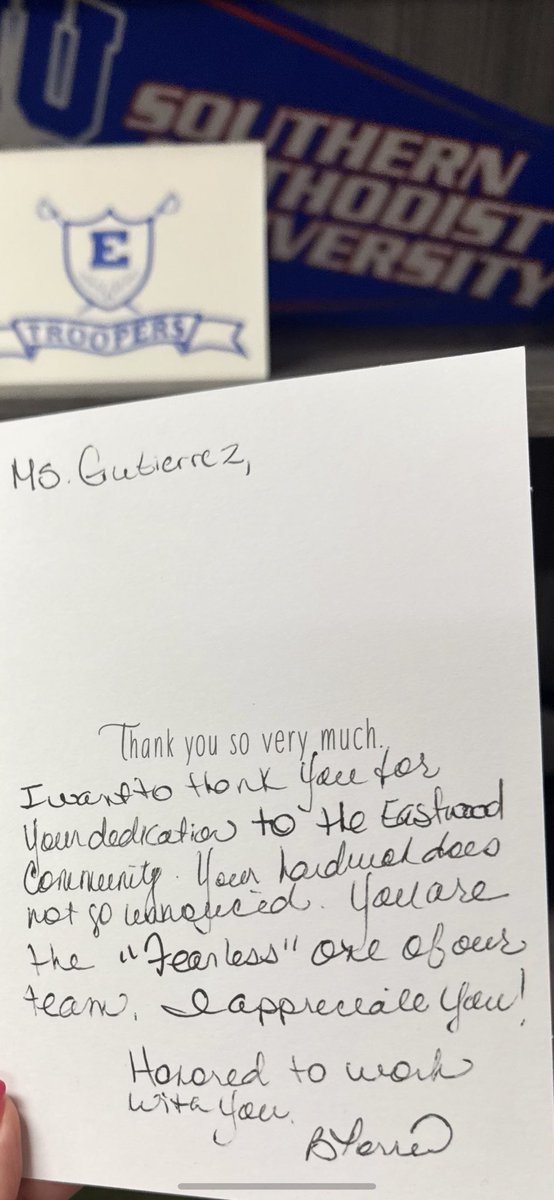 U
SOUTHERN
THODIST
VERSITY
E
TROOPERS
Ms. Gutierrez,
Thank you so very much.
I want to thank you for
your dedication to the Eastwood
Community. Your hardwork does
not go unnoticed. You are
the "Fearless" one of our
team. I appreciate you!
Honored to work
with you.